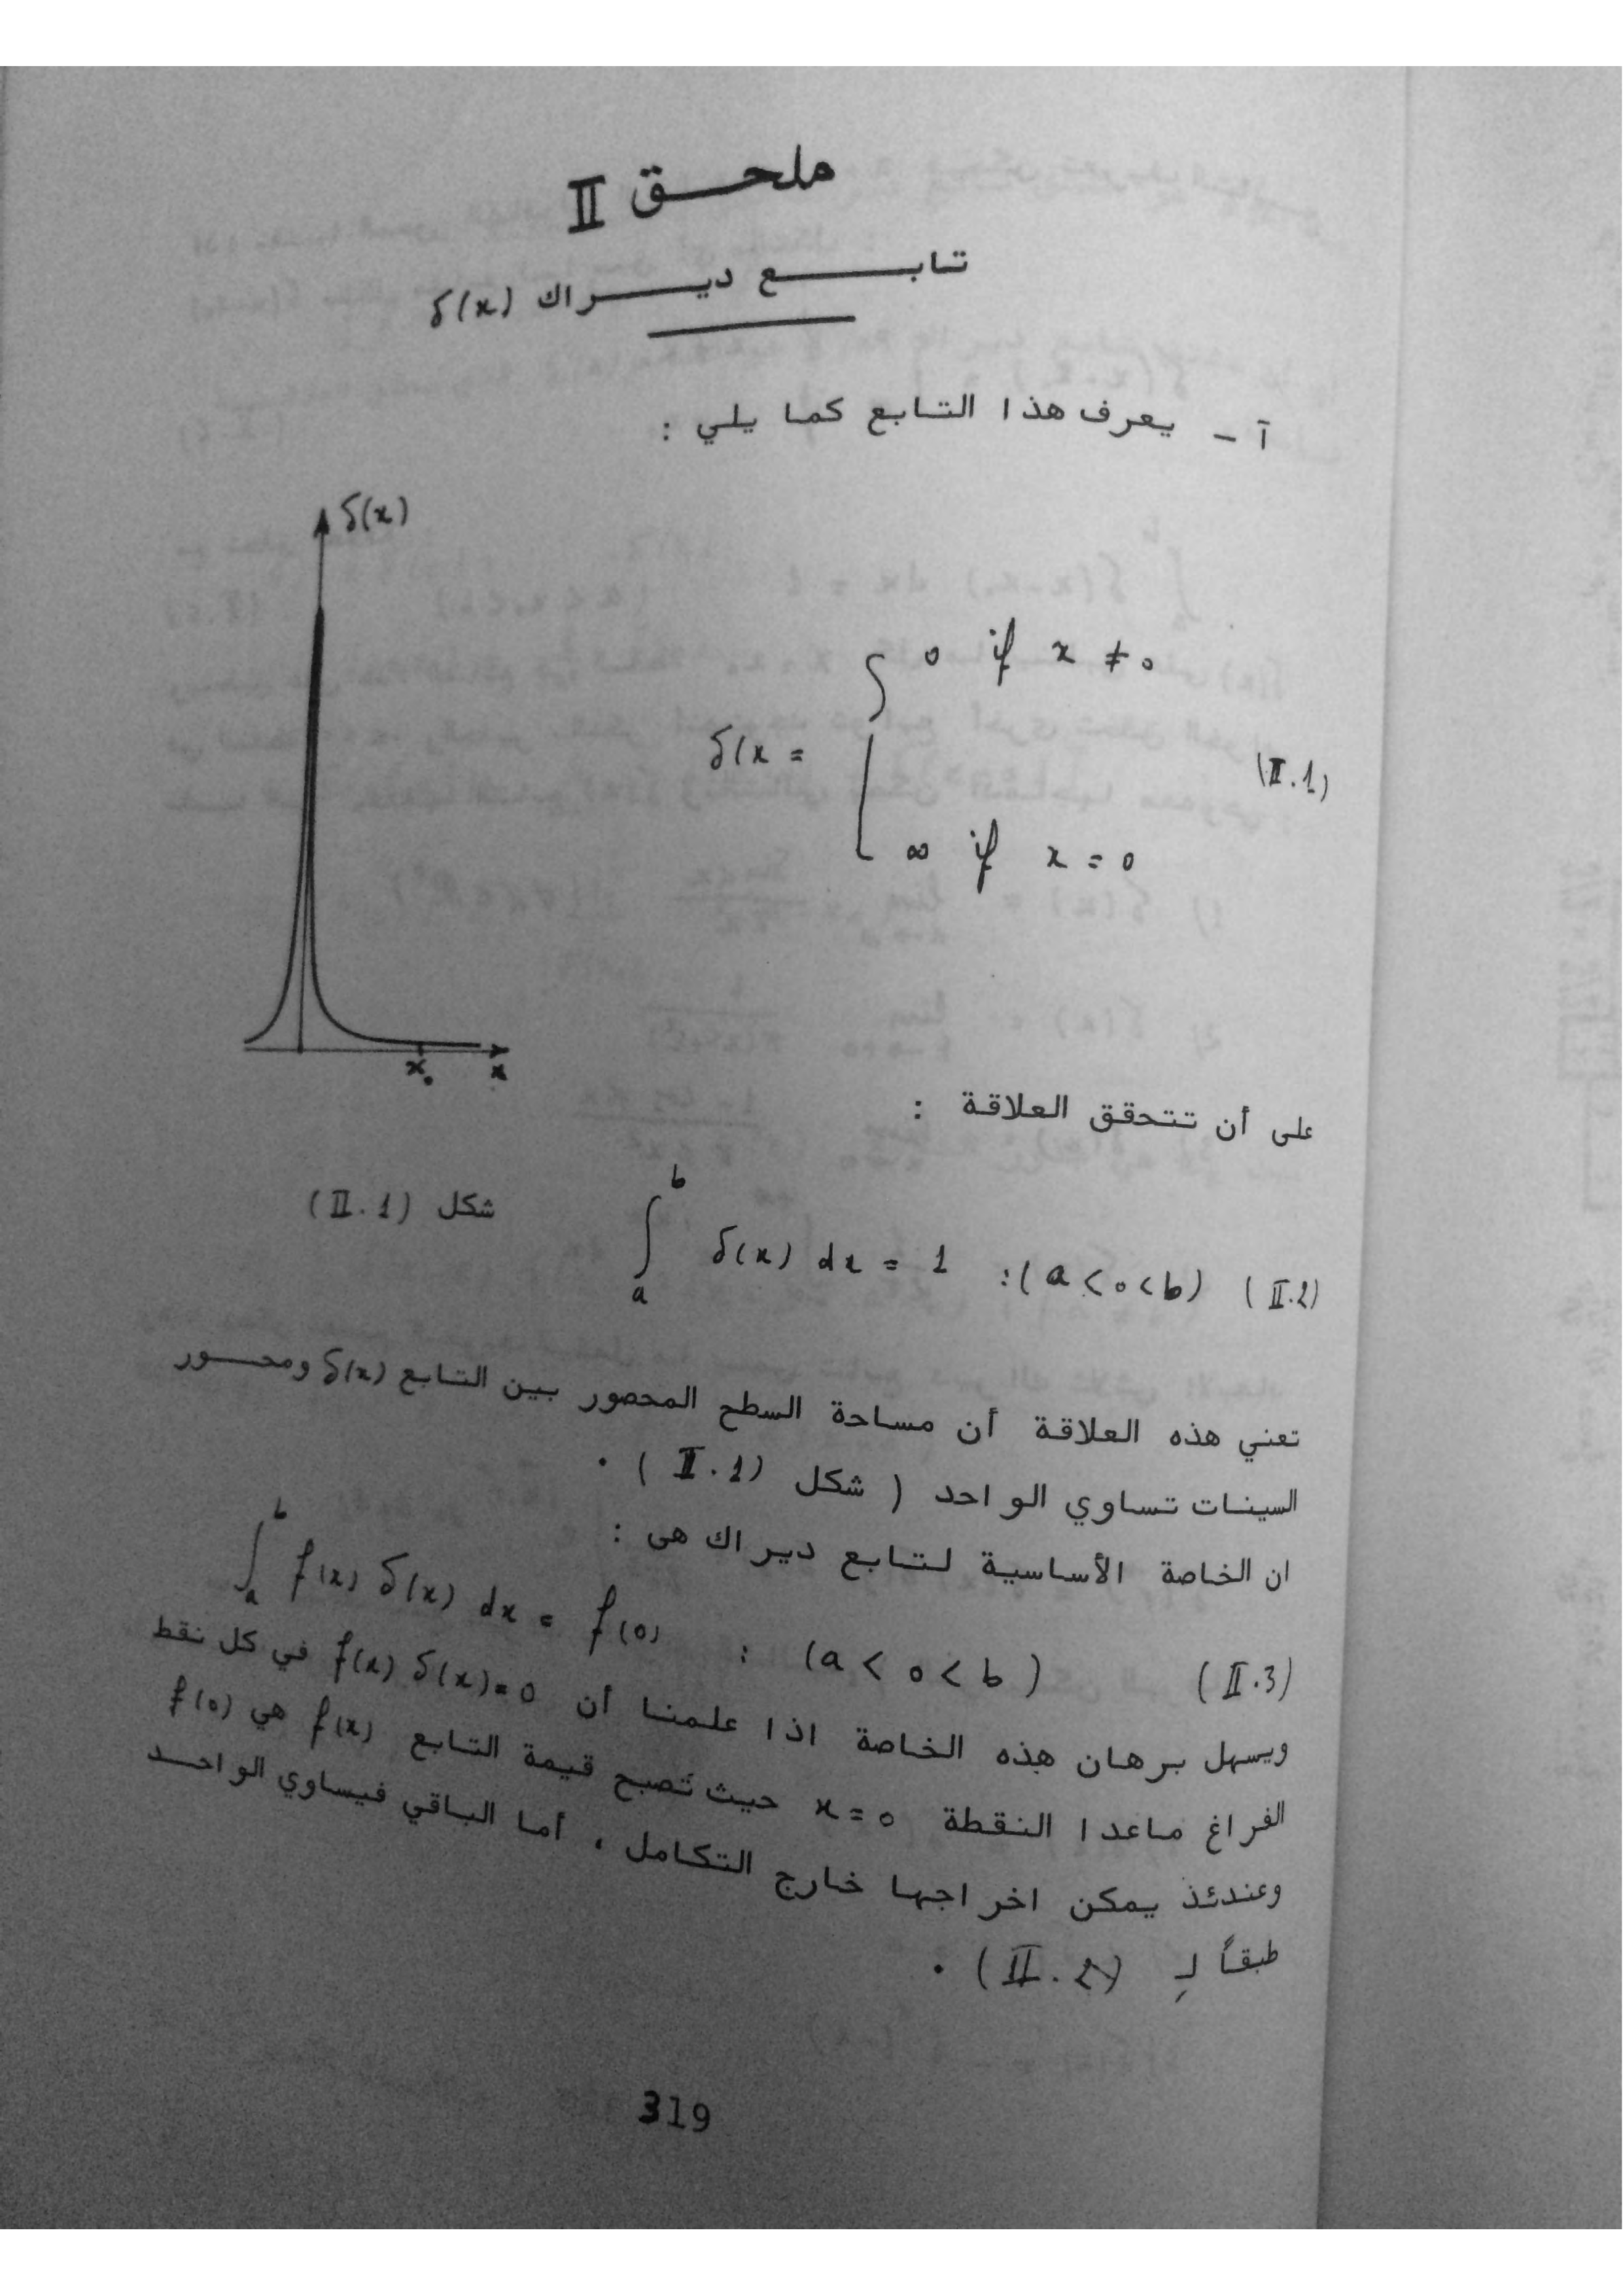 ملحق II
تابع ديراك δ(x)
آ - يعرف هذا التابع كما يلي :
δ(x)
0 if x ≠ 0
δ(x =
(II.1)
∞ if x = 0
x₀ x
على أن تتحقق العلاقة :
شكل (II.1)
∫ₐᵇ δ(x) dx = 1 :(a < 0 < b) (II.2)
تعني هذه العلاقة أن مساحة السطح المحصور بين التابع δ(x) ومحور
السينات تساوي الواحد ( شكل (II.1) ) .
ان الخاصة الأساسية لتابع ديراك هى :
∫ₐᵇ f(x) δ(x) dx = f(0) : (a < 0 < b) (II.3)
ويسهل برهان هذه الخاصة اذا علمنا أن f(x) δ(x)=0 في كل نقط
الفراغ ماعدا النقطة x=0 حيث تصبح قيمة التابع f(x) هي f(0)
وعندئذ يمكن اخراجها خارج التكامل ، أما الباقي فيساوي الواحد
طبقاً لـ (II.2) .
319